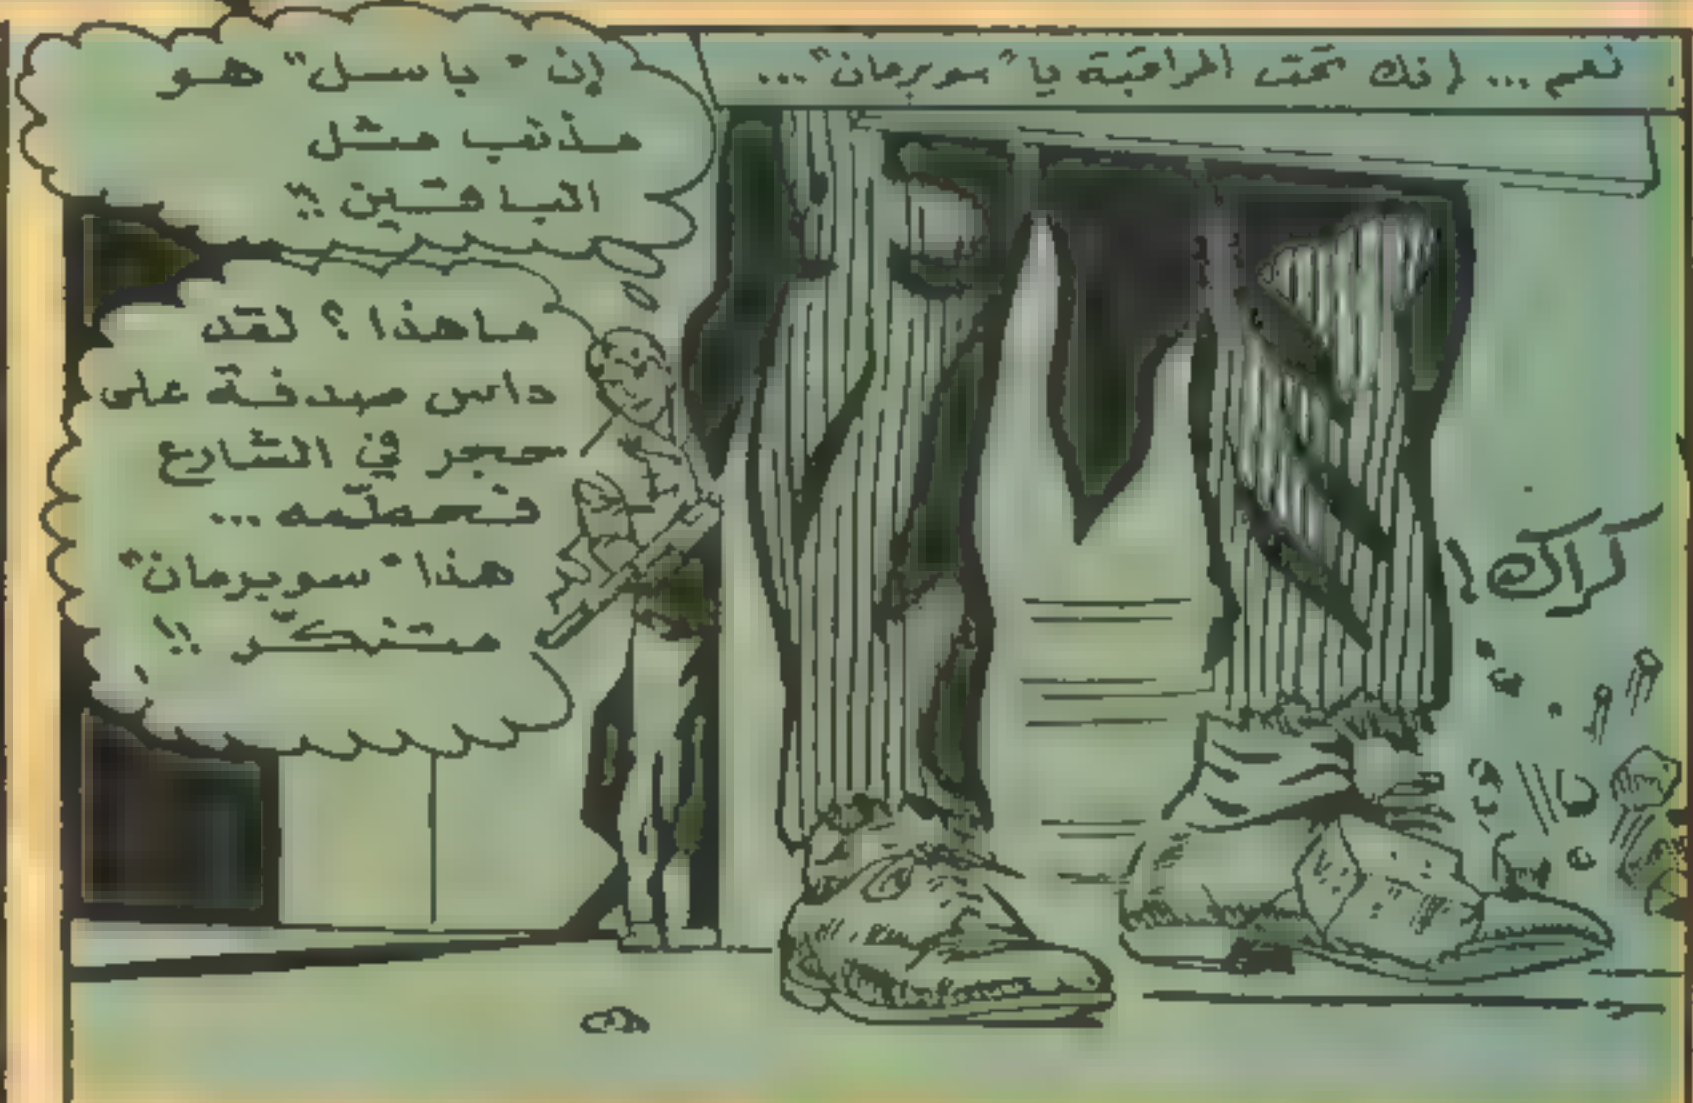 نعم... إنك تحت المراقبة يا "سوبرمان"...
إن "باسل" هو
مذنب مثل
الباقين !!
ماهذا؟ لقد
داس صدفة على
حجر في الشارع
فحطّمه...
هذا "سوبرمان"
متنكّر !!
كراك!